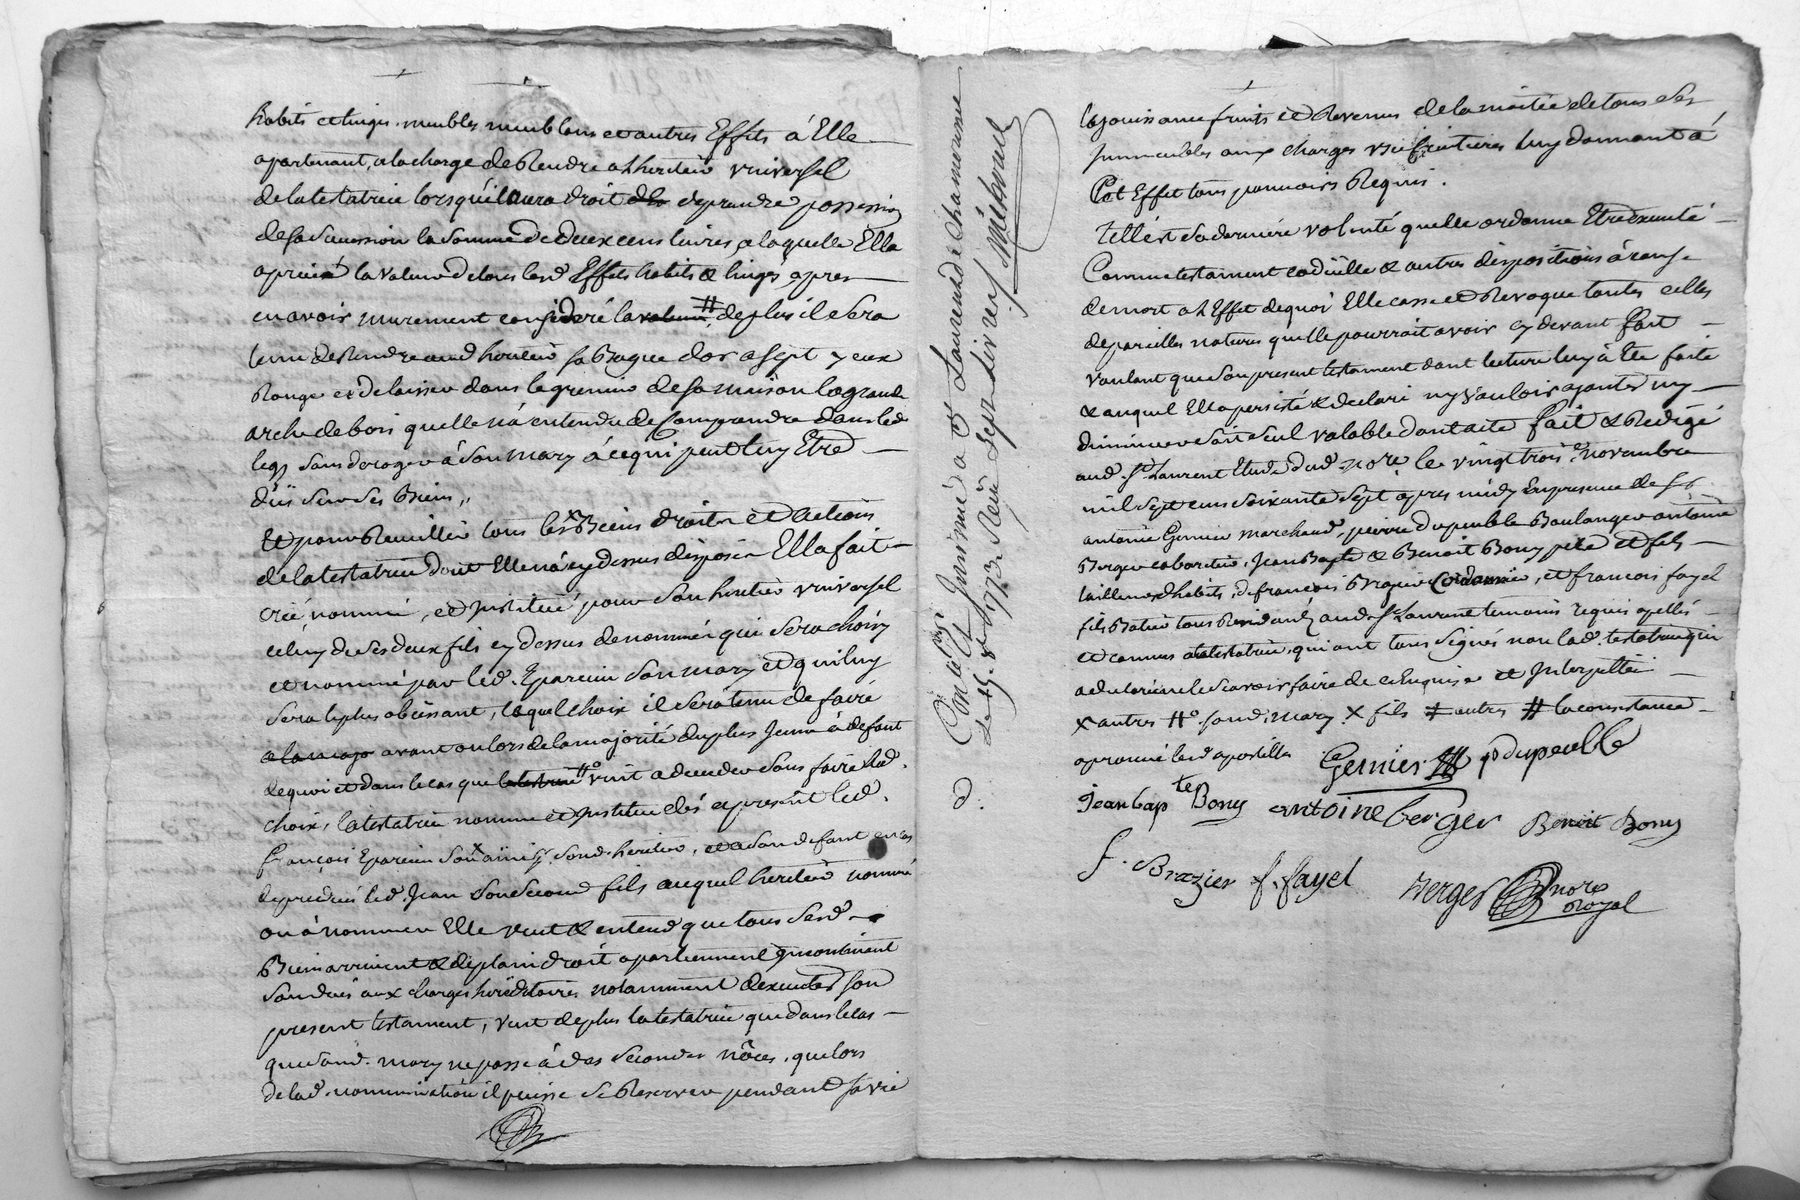 habits et linges, meubles meublans et autres Effets à Elle
apartenant, a la charge de Rendre a lheritier vniversel
de la testatrice lorsquil aura droit de prendre possession
de sa succession la somme de deux cens livres, a laquelle Elle
a prisé la valeur de tous lesd. Effets habits & linges apres
en avoir murement consideré la valeur #, de plus il Sera
tenu de Rendre aud heritier sa Bague dor a sept yeux
Rouge et de laisser dans le grenier de sa maison la grande
arche de bois quelle n'a entendu de Comprendre dans led.
legs sans deroger à Son mary à ce qui peut luy Etre
dû sur ses Biens,
Et pour Recueillir tous les x Biens droits et actions
de la testatrice dont Elle n'a cy dessus disposé Elle fait
crée, nomme, et Institue pour Son heritier vniversel
celuy de ses deux fils cy dessus denommés qui sera choisy
et nommé par led. Eparcieu Son mary et qui luy
sera le plus obeissant, lequel choix il sera tenu de faire
a la majo avant ou lors de la majorité du plus Jeune à defaut
de quoi et dans le cas que la testrice #o vint a deceder sans faire lad.
choix, la testatrice nomme et Institue dès apresent led.
françois Eparcieu Son x ainé p. Sond. heritier, et a son defaut en cas
de predecés led. Jean Son Second fils auquel heritier nommé
ou à nommer Elle veut & entend que tous Sesd.
Biens arrivent & de plain droit apartiennent incontinent
Son decés aux charges hereditaires notamment dexecuter Son
present testament, veut de plus la testatrice que dans le cas
que Sond. mary ne passe à des Secondes nôces, que lors
de lad. nomination il puisse Se Reserver pendant sa vie
Conllé Insinué a St. Laurend de Chamousse
Le 15. 8bre 1773. Reçu Sept Livres
d.
la jouissance fruits et Revenus de la moitié de tous Ses
Immeubles aux charges usufruitieres luy donnant à
Cet Effet tous pouvoirs Requis.
Tell'est Sa derniere volonté quelle ordonne Etre executé
Comme testament codicille & autres dispositions à cause
de mort a L'Effet dequoi Elle casse et Revoque toutes celles
de pareilles natures quelle pourrait avoir cy devant fait
voulant que Son present testament dont lecture luy à Eté faite
& auquel Elle a persisté & declaré ny vouloir ajouter ny
diminuer soit seul valable dont acte fait & Redigé
aud. St. Laurent Etude dud. nore le vingt trois e. novembre
mil Sept cens soixante Sept apres midy En presence de Srs.
antoine Gernier marchand, pierre dupeuble Boulanger antoine
Berger cabaretier, Jean Bapte & Benoit Bony pere et fils
tailleurs d'habits, de françois Brazier Cordonnier, et francois fayel
fils Batier tous Residants aud. St. Laurent temoins requis apellés
et connus a la testatrice, qui ont tous Signés non lad. testatrice qui
a declaré ne le Scavoir faire de ce Enquise et Interpellée
x autres #o. Sond. mary x fils # autres # la consistance
aprouvé lesd. apostilles Gernier p dupeuble
jean bap te Bony antoine berger Benoit Bony
f. Brazier f. fayel Verges nore
Royal